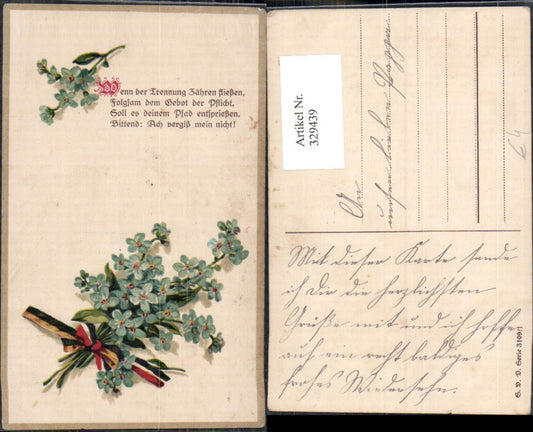 Wenn der Trennung Zähren fließen,
Folgsam dem Gebot der Pflicht,
Soll es deinem Pfad entsprießen,
Bittend: Ach vergiß mein nicht!
Artikel Nr.
329439
An
lieben
Mit dieser Karte sende
ich Dir die herzlichsten
Grüße mit und ich hoffe
auf ein recht baldiges
frohes Wiedersehn.
Serie 3109/1